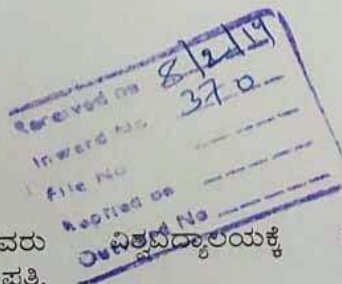 Received on 8/2/19
Inward No 370
File No
Replied on
Outward No
ವರು ವಿಶ್ವವಿದ್ಯಾಲಯಕ್ಕೆ
ಪ್ರತಿ